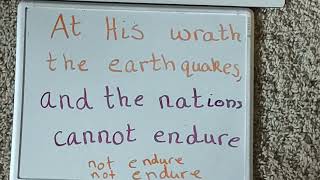 At His wrath
the earthquakes,
and the nations
cannot endure
not endure
not endure